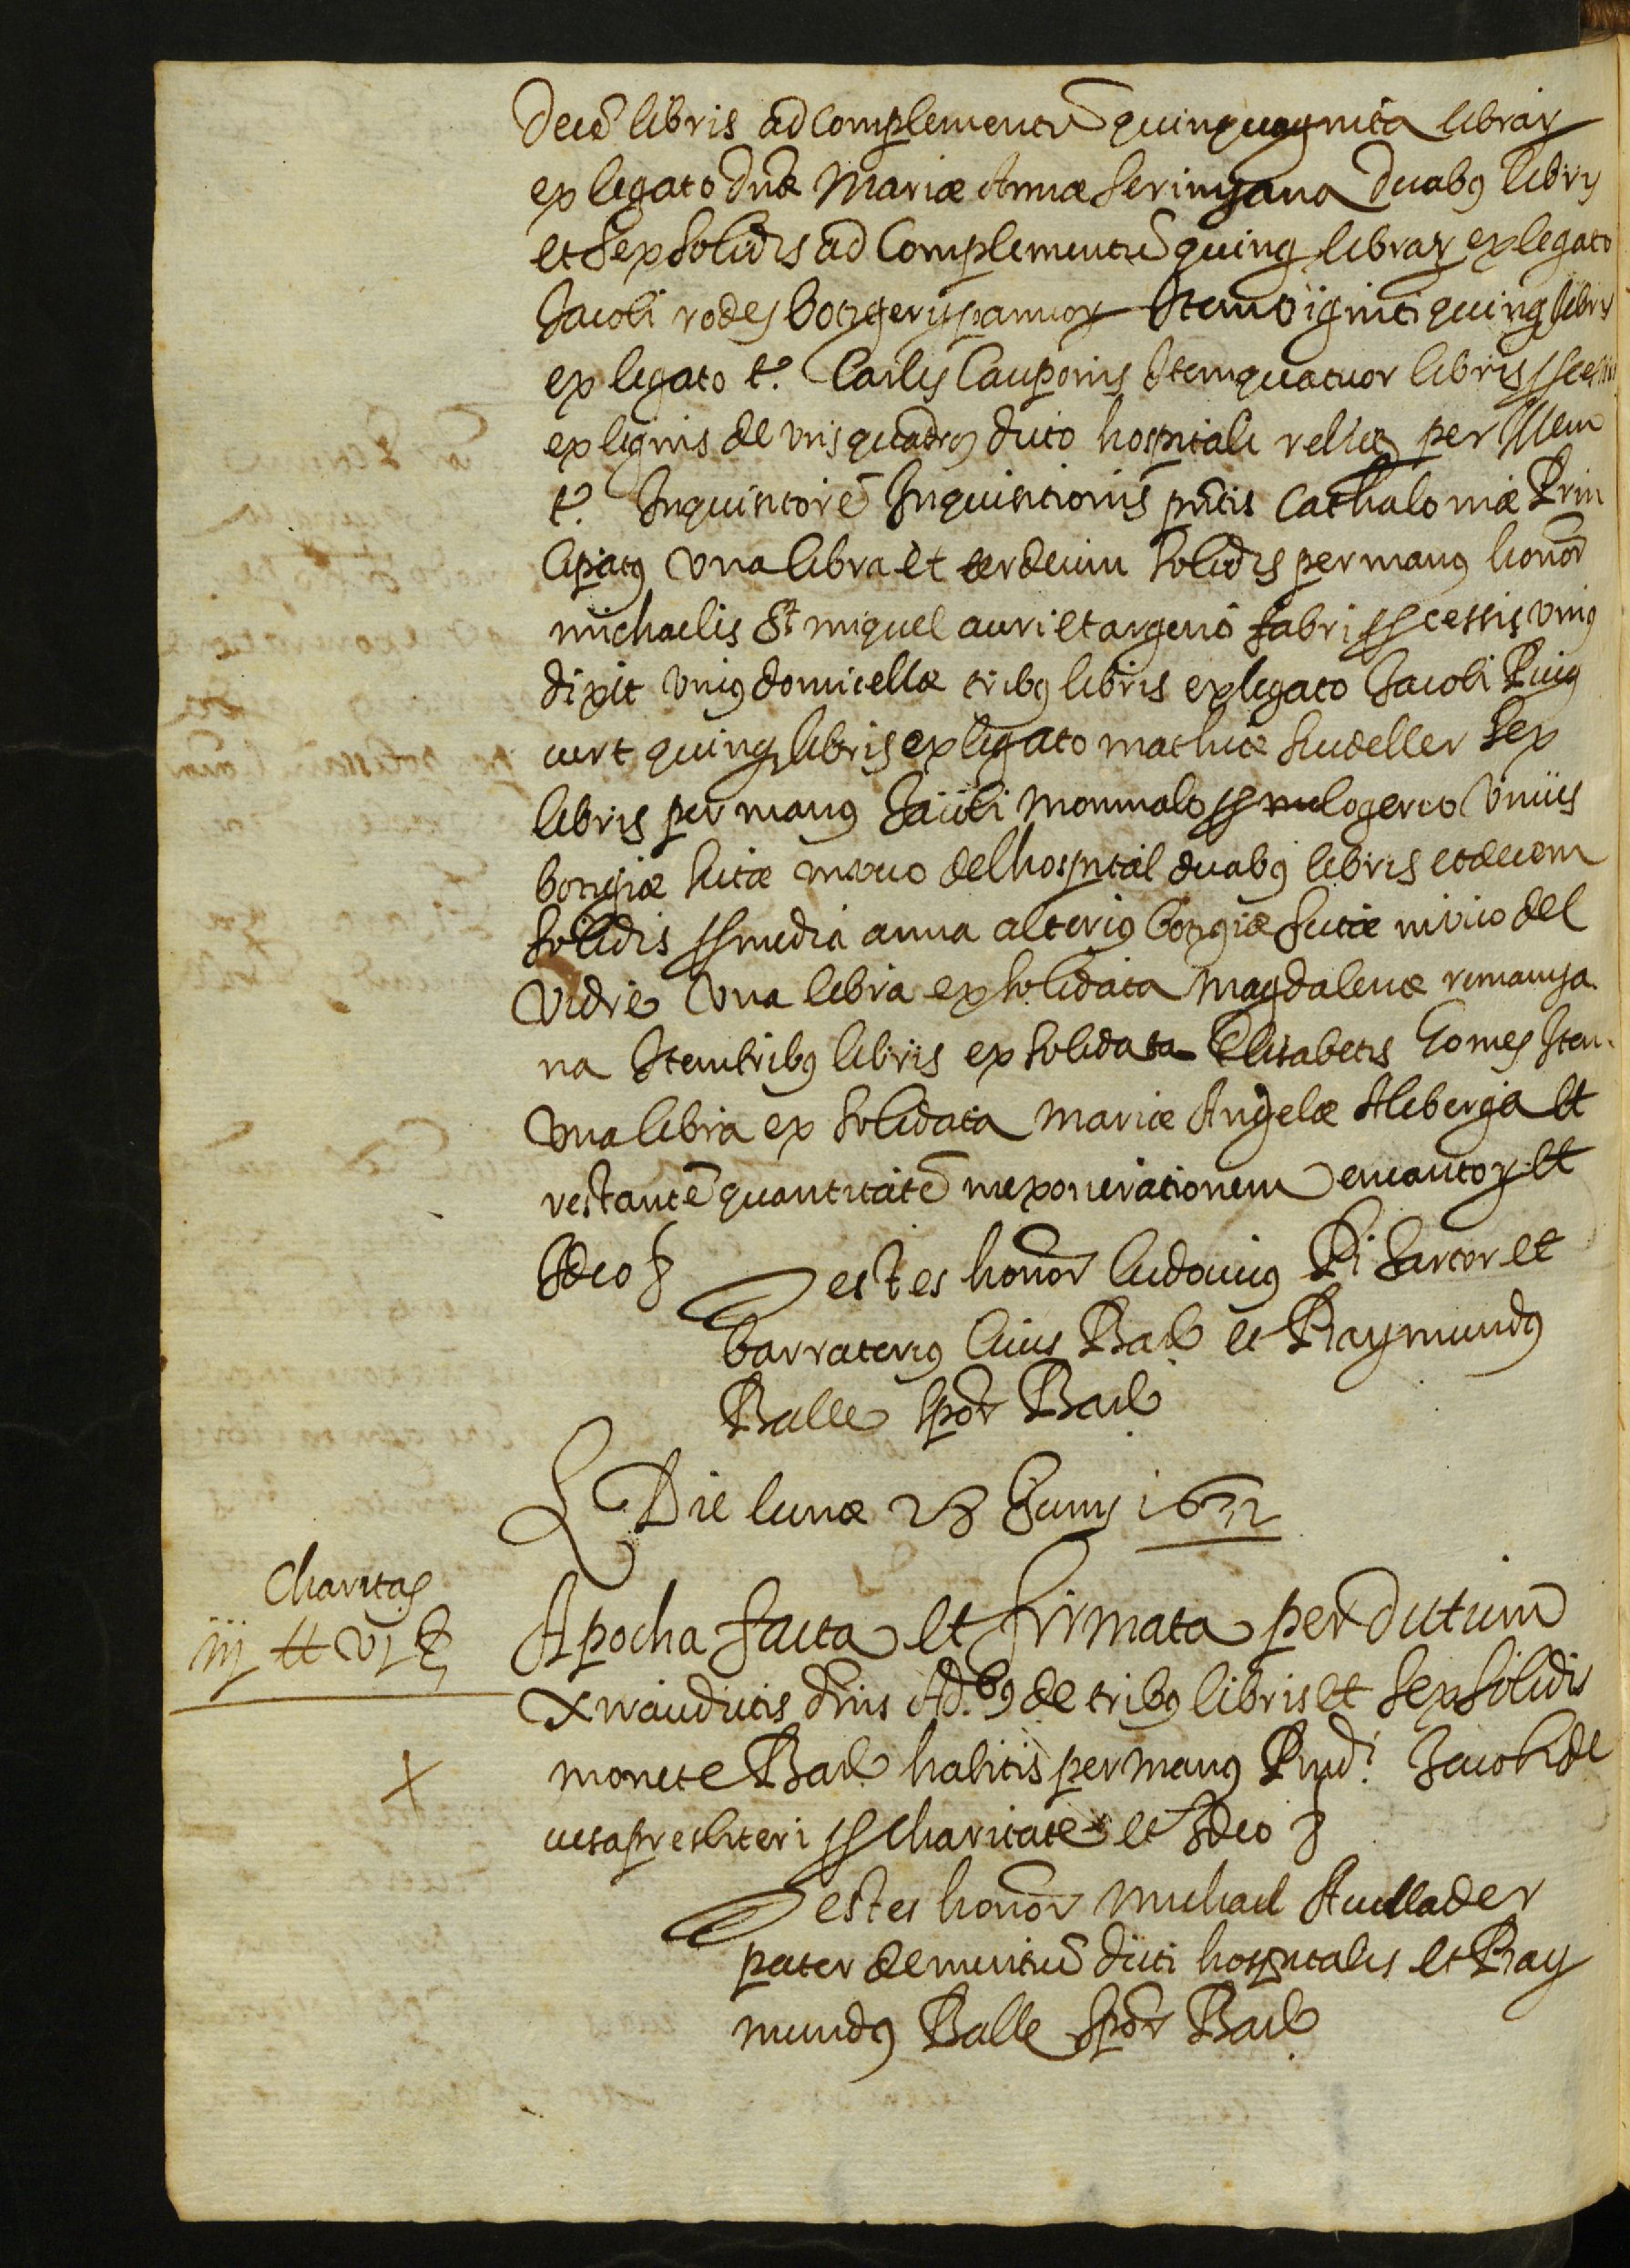 decē libris ad complementū quinquaginta librar
ex legato dnæ Mariæ Annæ Seringana duabꝰ libris
et sex solidis ad complementū quinq librar ex legato
Jacobi rodes botigerij pannor Item viginti quinq libris
ex legato t.º Carles Cauponis Item quatuor libris
ex lignis de vris quadros dicto hospitali per Illem
t.º Inquisitorē Inquisitionis pntis Cathaloniæ Prin
cipatꝰ una libra et terdecim solidis per manꝰ honor
michaelis St miquel auri et argenti fabri cessis uniꝰ
dixit uniꝰ domicellæ tribꝰ libris ex legato Jacobi Puig
vert quinq libris ex legato mathiæ Sudeller Sex
libris per manꝰ Jacobi Monmalo logerio unius
botigiæ sitæ in vico del hospital duabꝰ libris et decem
solidis media anna alteriꝰ botigiæ sitæ in vico del
vidre una libra ex solidata Magdalenæ
na Item tribꝰ libris ex solidata Elisabetis Gomes Item
una libra ex solidata Mariæ Angelæ Aleberga et
restantē quantitatē in exonerationem encantor et
Ideo &
Testes honor ludovicꝰ Pi sartor et
barrateriꝰ civis Barͨ et Raymundꝰ
Balle spor Barͨ
Die lunæ 28 Junij 1632
Charitas
iij ℔ vj ẞ
Apocha facta et firmata per dictum
Xuriaudictis dnis Ad.bꝰ de tribꝰ libris et sex solidis
monete Barͨ habitis per manꝰ Rndi Jacobi de
presbiteri charitate et Ideo &
Testes honor Michael Auellader
pater dementiū dicti hospitalis et Ray
mundꝰ Balle spor Barͨ